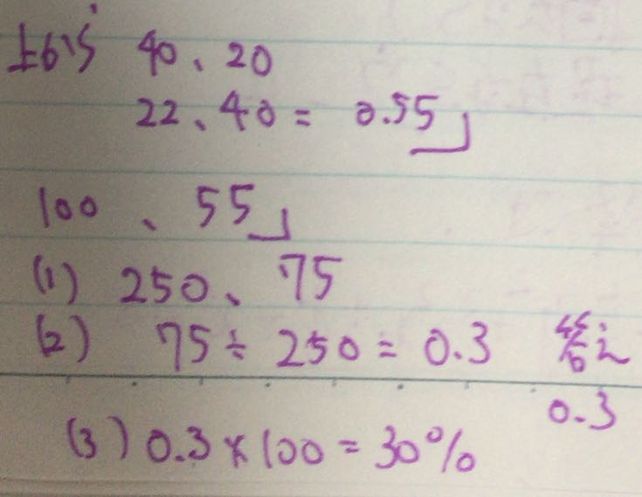 上から 40、20
22、40 = 0.55
100、55
(1) 250、75
(2) 75÷250=0.3 答え
0.3
(3) 0.3×100=30%